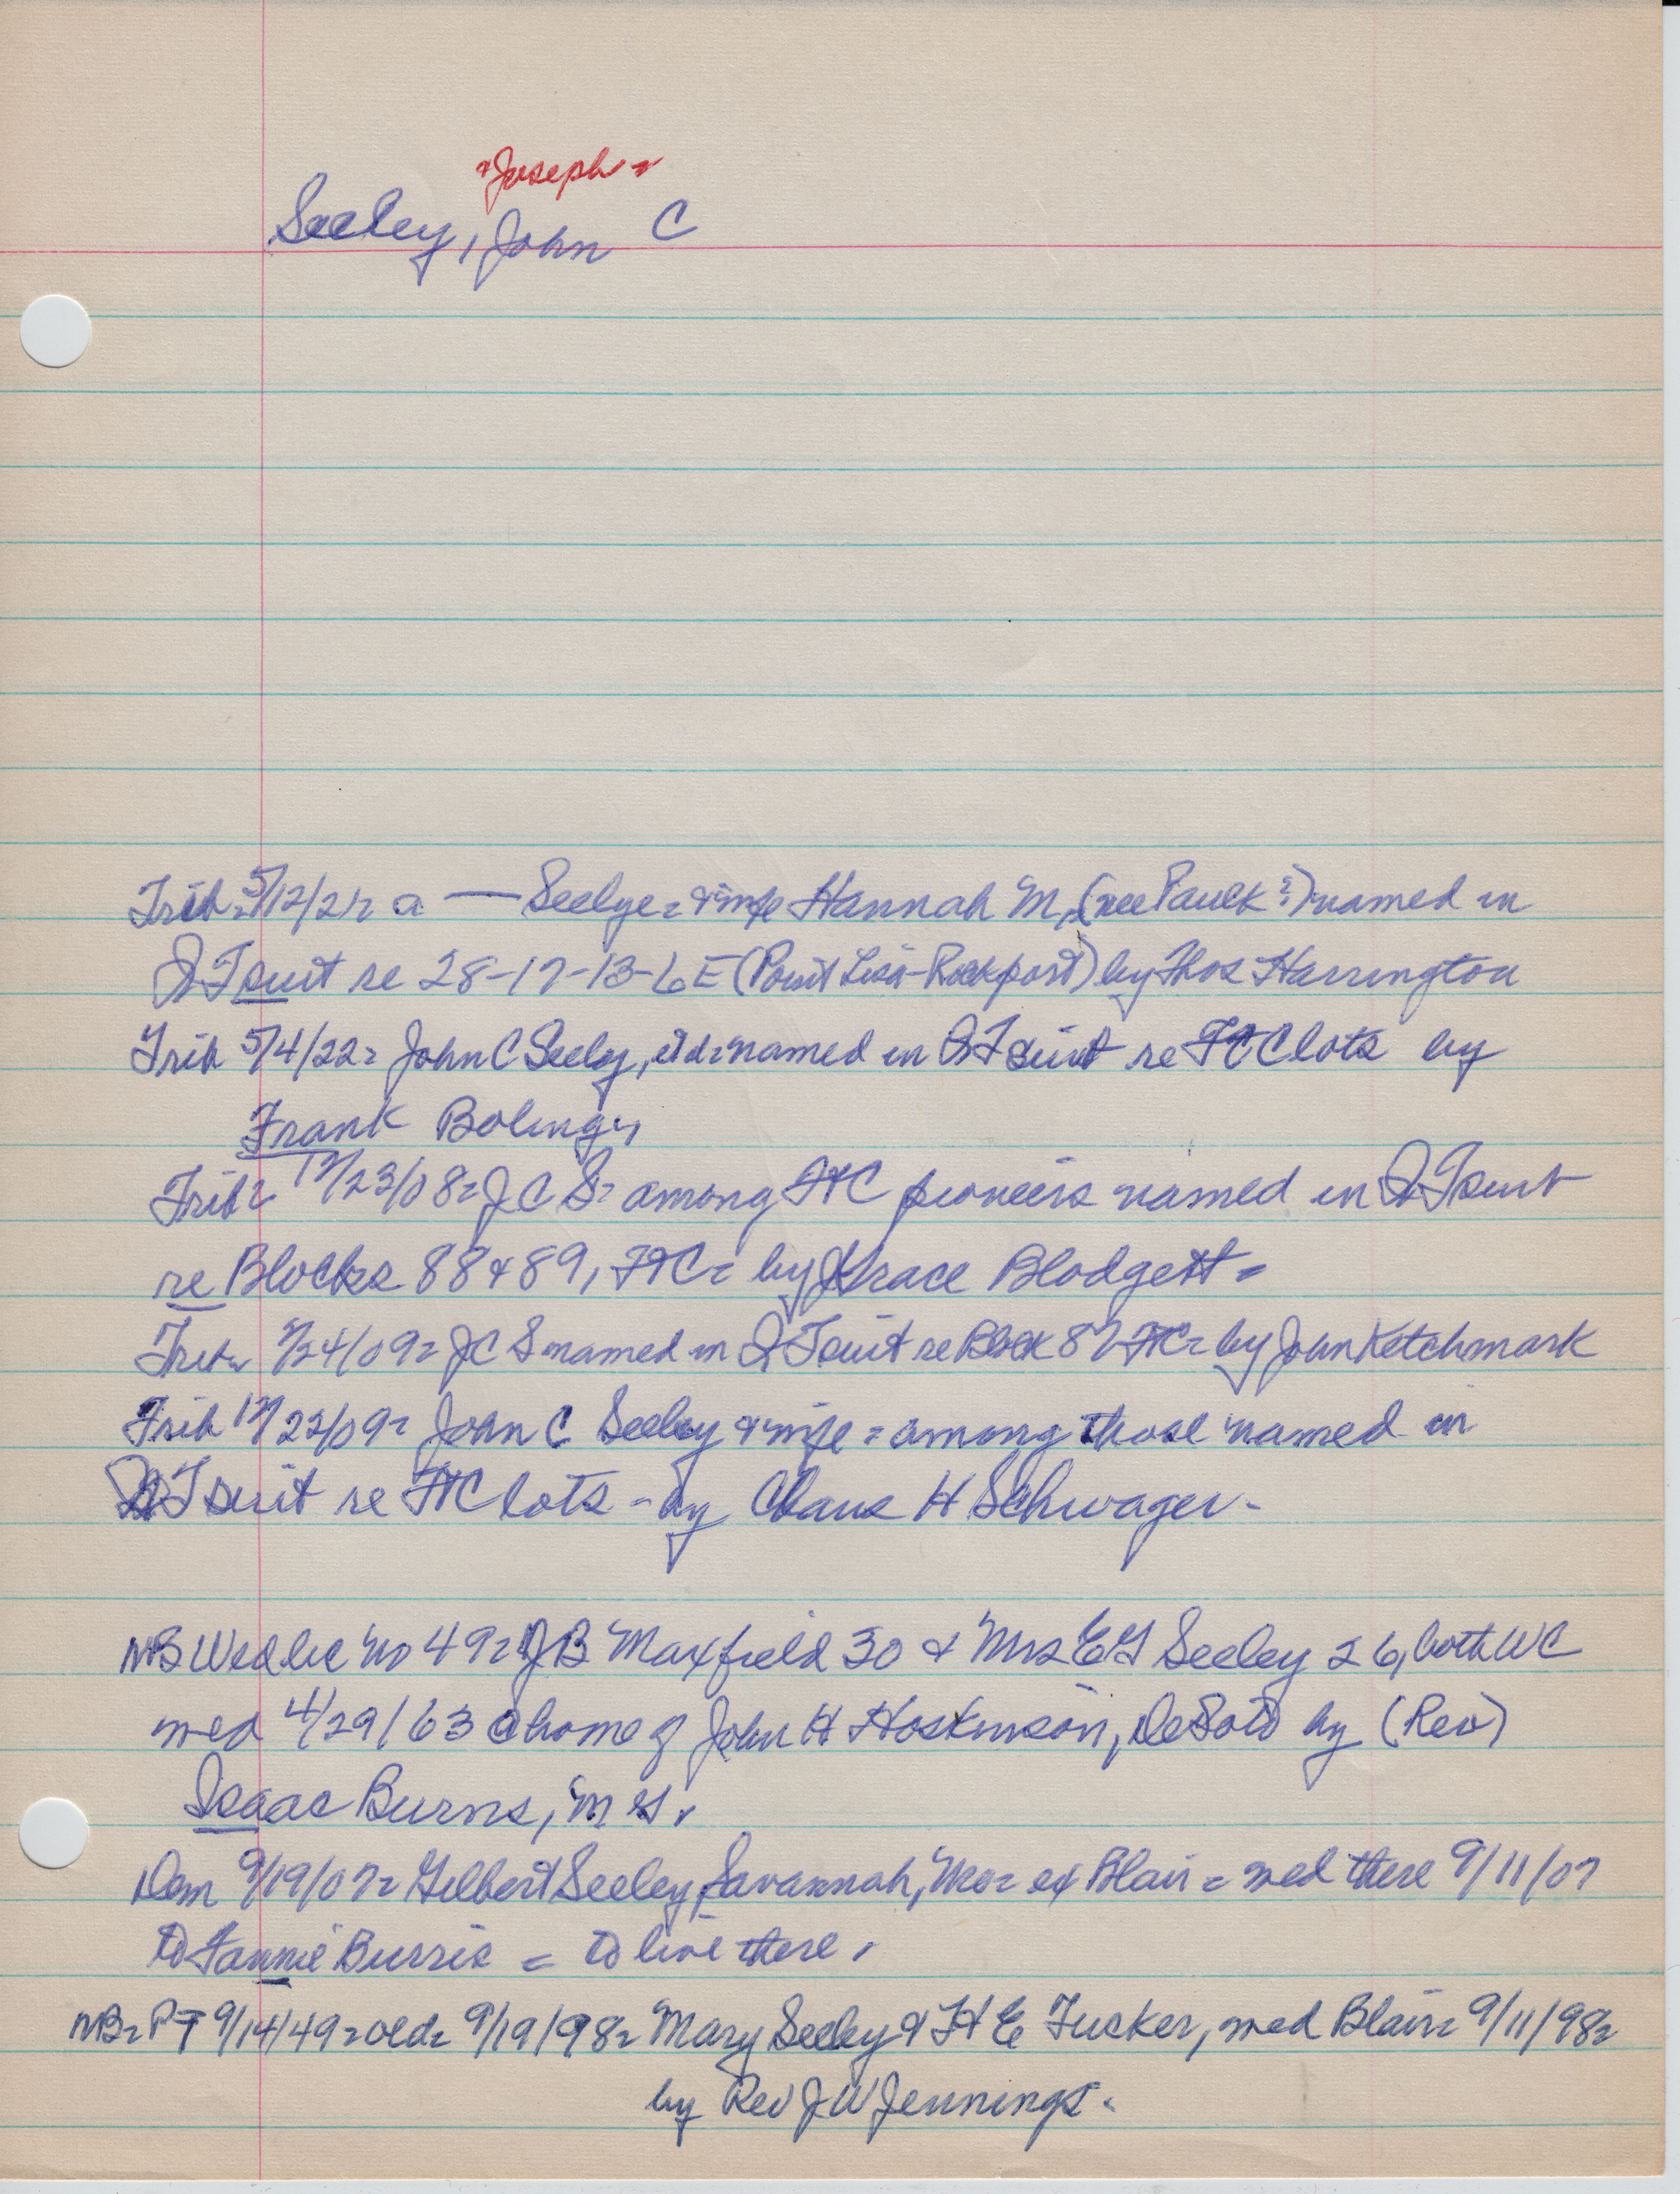 =Joseph=
Seeley, John C
Trib= 5/12/21= a — Seelye= & wife Hannah M, (nee Paulk?) named in
QT suit re 28-17-13-6E (Point Lisa-Rockport) by Thos Harrington
Trib 5/4/22= John C Seeley, etal= named in QT suit re FTC lots by
Frank Boling,
Trib= 12/23/08= J C S= among FTC pioneers named in QT suit
re Blocks 88 & 89, FTC= by Grace Blodgett=
Trib= 9/24/09= JC S named in QT suit re Block 87 FTC= by John Ketchmark
Trib 12/22/09= John C Seeley & wife = among those named in
QT suit re FTC lots - by Claus H Schwager-
NB Wed lic No 49= JB Maxfield 30 & Mrs EG Seeley 26, both WC
med 4/29/63 @ home of John H Hoskinson, DeSoto by (Rev)
Isaac Burns, M G.
Dem 9/19/07= Gilbert Seeley, Savannah, Mo= ex Blair = med there 9/11/07
to Fannie Burris = to live there.
NB= PT 9/14/49= old= 9/19/98= Mary Seeley & H E Tucker, med Blair= 9/11/98=
by Rev J W Jennings.